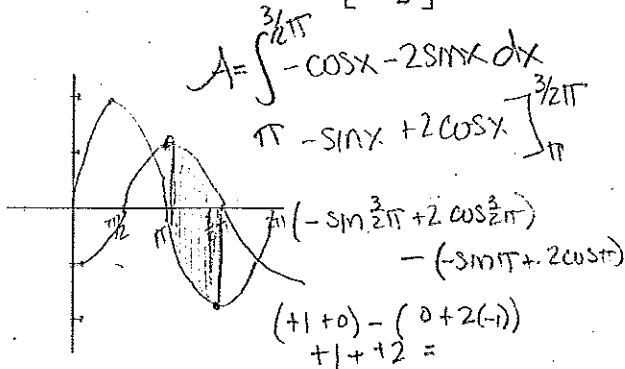 A = ∫ 3/2π -cosx - 2sinx dx
π -sinx + 2cosx ] 3/2π π
π/2 π
(-sin 3/2π + 2 cos 3/2π)
- (-sinπ + 2cosπ)
(+1 + 0) - (0 + 2(-1))
+1 + +2 =